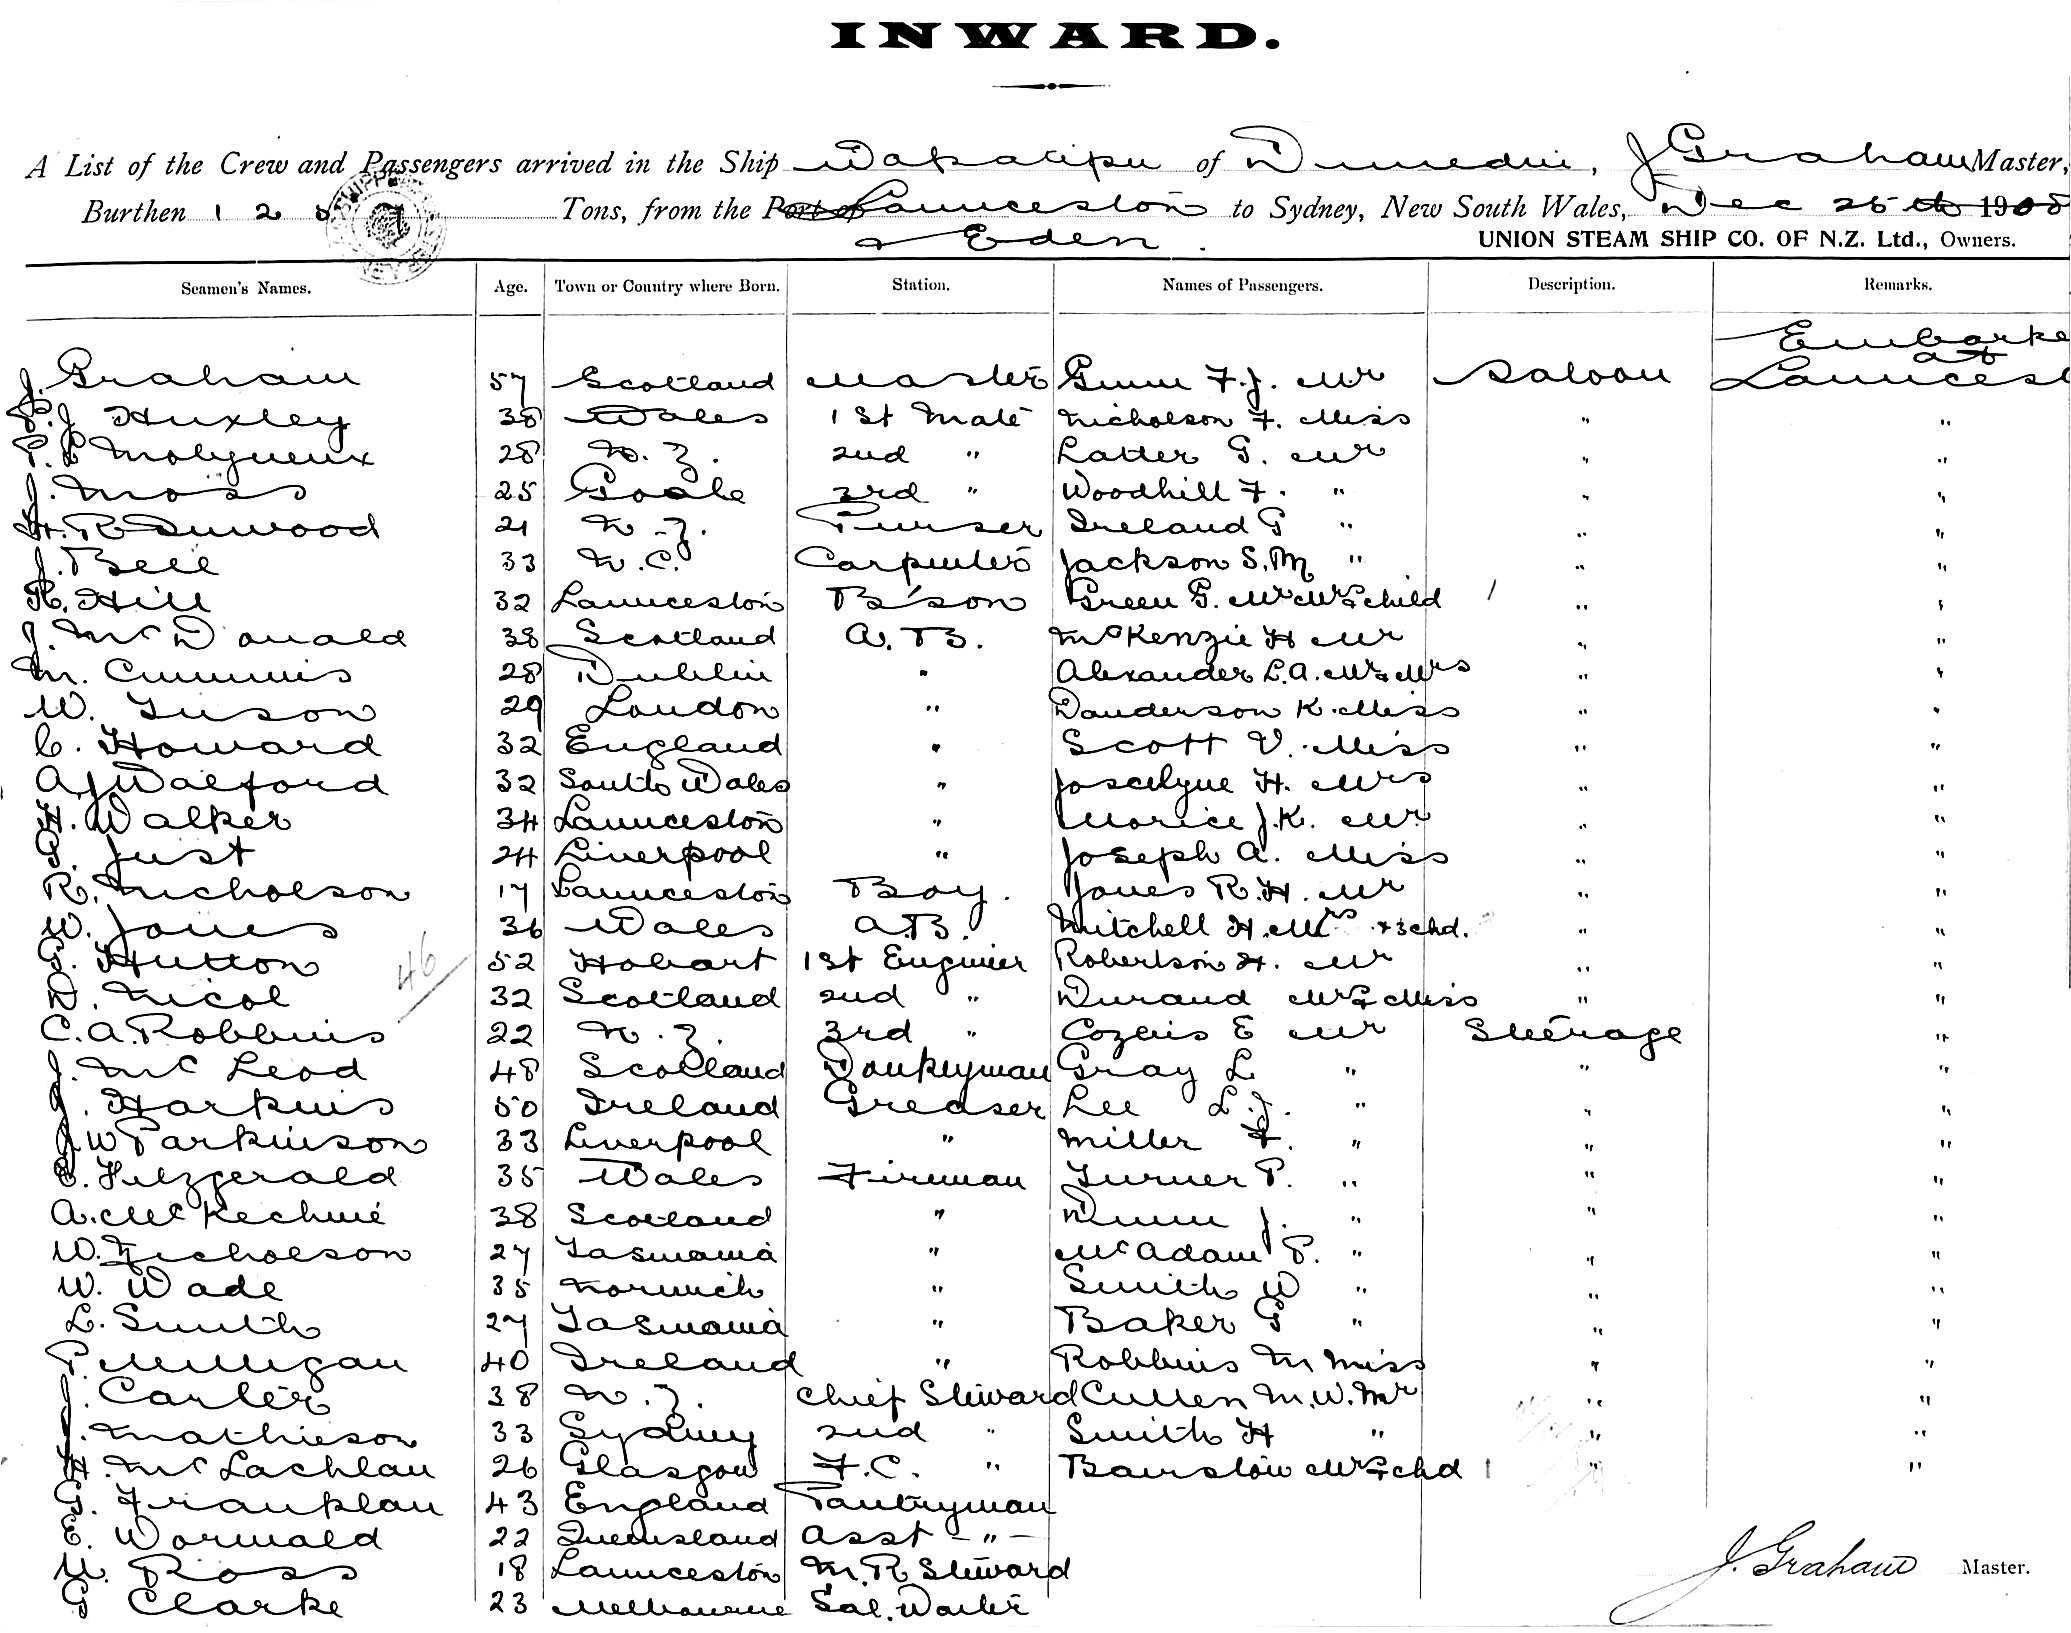 INWARD.
A List of the Crew and Passengers arrived in the Ship Wakatipu of Dunedin, J Graham Master,
Burthen 1 2 5 Tons, from the Port of Launceston to Sydney, New South Wales, Dec 25th 1908
& Eden.
UNION STEAM SHIP CO. OF N.Z. Ltd., Owners.
Seamen's Names. Age. Town or Country where Born. Station. Names of Passengers. Description. Remarks.
Embarke
at
J. Graham 57 Scotland Master Gunn F.J. Mr Saloon Launcest
P.J Huxley 38 Wales 1st Mate Nicholson F. Miss " "
P.L Molyneux 28 N.Z. 2nd " Latter G. Mr " "
J. Moss 25 Goole 3rd " Woodhill F. " " "
H.R Inwood 21 N.Z. Purser Ireland G " " "
J. Bell 33 N.C. Carpenter Jackson S.M " " "
R. Hill 32 Launceston B'son Green G. Mr Mrs & child 1 " "
J. McDonald 38 Scotland A.B. McKenzie H Mr " "
M. Cummins 28 Dublin " Alexander L.A. Mr & Mrs " "
W. Tuson 29 London " Danderson K. Miss " "
C. Howard 32 England " Scott V. Miss " "
A.J Walford 32 South Wales " Joscelyne H. Mrs " "
H. Walker 34 Launceston " Morice J.K. Mr. " "
G. Just 24 Liverpool " Joseph A. Miss " "
R. Nicholson 17 Launceston Boy. Jones R.H. Mr " "
W. Jones 36 Wales A.B. Mitchell H. Mrs + 3 chd. " "
G. Hutton 46 52 Hobart 1st Engineer Robertson H. Mr " "
D. Nicol 32 Scotland 2nd " Durand Mrs & Miss " "
C.A. Robbins 22 N.Z. 3rd " Cozens E Mr Steerage "
J. McLeod 48 Scotland Donkeyman Gray L " " "
J. Harkins 50 Ireland Greaser Lee L.J. " " "
J.W Parkinson 33 Liverpool " Miller F. " " "
C. Fitzgerald 35 Wales Fireman Turner P. " " "
A. McKechnie 38 Scotland " Dunn J. " " "
W. Nicholson 27 Tasmania " McAdam P. " " "
W. Wade 35 Norwich " Smith W " " "
L. Smith 27 Tasmania " Baker G " " "
P. Milligan 40 Ireland " Robbins M Miss " "
J. Carter 38 N.Z. Chief Steward Cullen M.W. Mr " "
J. Mathieson 33 Sydney 2nd " Smith H " " "
H. McLachlan 26 Glasgow F.C. " Bairstow Mrs & chd 1 " "
G. Franklan 43 England Pantryman
E. Worwald 22 Queensland Asst - " -
M. Ross 18 Launceston M.R Steward
G Clarke 23 Melbourne Sal. Waiter
J. Graham Master.